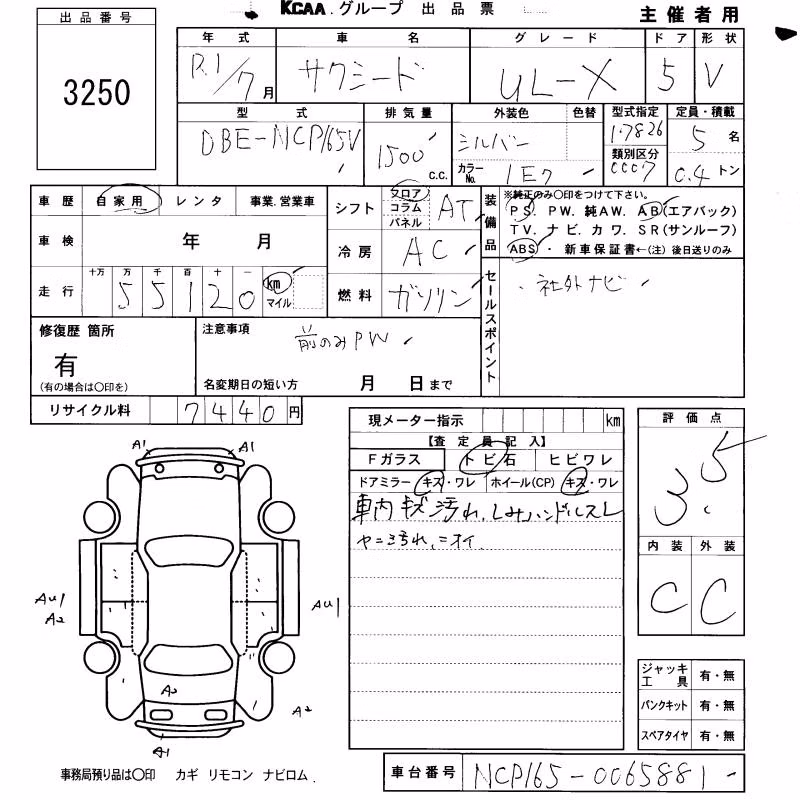 KCAA.グループ 出品票
主催者用
出品番号
3250
年式 車名 グレード ドア 形状
R.1/7月 サクシード UL-X 5 V
型式 排気量 外装色 色替 型式指定 定員・積載
DBE-NCP165V 1500 c.c. シルバー 17826 5名
カラーNo. 1E7 類別区分 0007 0.4トン
車歴 自家用 レンタ 事業.営業車
車検 年 月
走行 十万 万 千 百 十 一
55120 km マイル
シフト フロア コラム パネル AT
冷房 AC
燃料 ガソリン
装備品 ※純正のみ〇印をつけて下さい。
PS. PW. 純AW. AB(エアバック)
TV. ナビ. カワ. SR(サンルーフ)
ABS・新車保証書←(注)後日送りのみ
セールスポイント ・社外ナビ
修復歴 箇所
有
(有の場合は〇印を)
注意事項
前のみPW
名変期日の短い方 月 日まで
リサイクル料 7440円
現メーター指示 km
【査定員記入】
Fガラス トビ石 ヒビワレ
ドアミラー キズ・ワレ ホイール(CP) キズ・ワレ
車内キズ汚れ.しみハンドルスレ
ヤニ汚れ.ニオイ
評価点
3.5
内装 外装
C C
ジャッキ工具 有・無
パンクキット 有・無
スペアタイヤ 有・無
A1 A1
AU1 AU1
A2
A2 A2
A1
事務局預り品は〇印 カギ リモコン ナビロム.
車台番号 NCP165-0065881